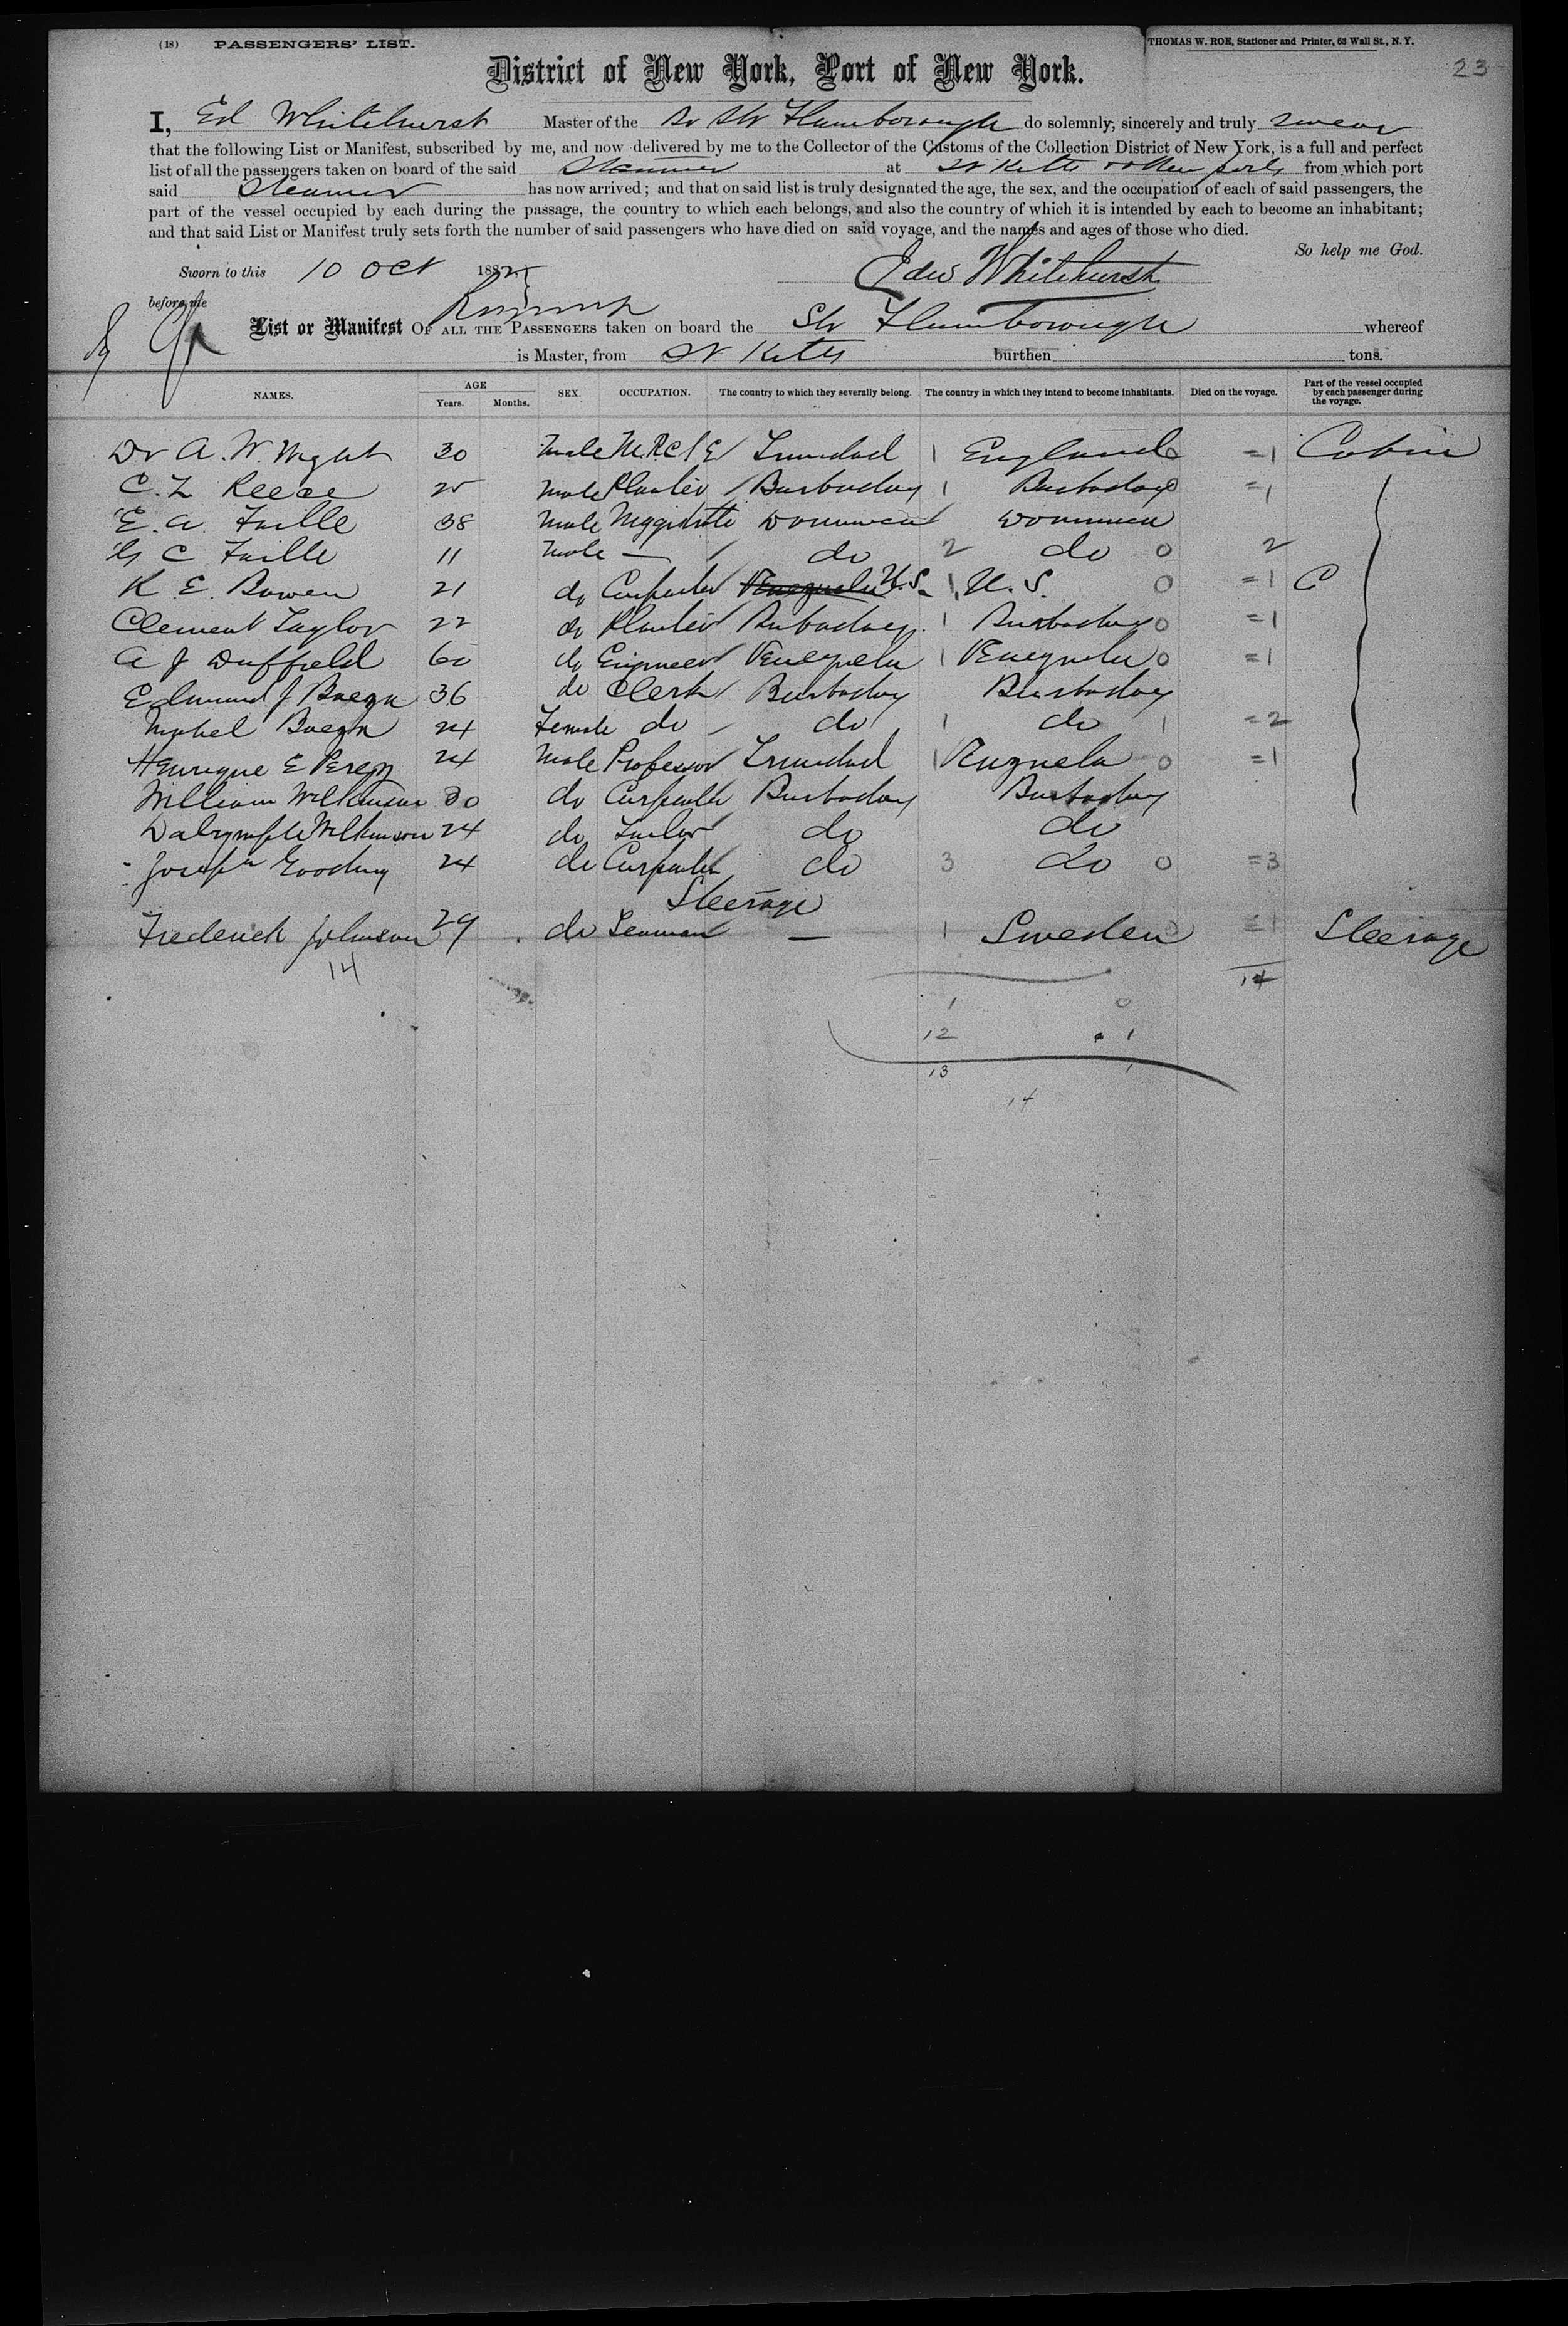 (18) PASSENGERS' LIST. THOMAS W. ROE, Stationer and Printer, 63 Wall St., N. Y.
23
District of New York, Port of New York.
I, Ed Whitehurst Master of the Br Str Flamborough do solemnly, sincerely and truly swear
that the following List or Manifest, subscribed by me, and now delivered by me to the Collector of the Customs of the Collection District of New York, is a full and perfect
list of all the passengers taken on board of the said Steamer at St Kitts & other ports from which port
said Steamer has now arrived; and that on said list is truly designated the age, the sex, and the occupation of each of said passengers, the
part of the vessel occupied by each during the passage, the country to which each belongs, and also the country of which it is intended by each to become an inhabitant;
and that said List or Manifest truly sets forth the number of said passengers who have died on said voyage, and the names and ages of those who died.
So help me God.
Sworn to this 10 Oct 188 Edw Whitehurst
before me
List or Manifest OF ALL THE PASSENGERS taken on board the Str Flamborough whereof
is Master, from St Kitts burthen tons.
NAMES. AGE Years. Months. SEX. OCCUPATION. The country to which they severally belong. The country in which they intend to become inhabitants. Died on the voyage. Part of the vessel occupied by each passenger during the voyage.
Dr A. W. Wight 30 male Trinidad 1 England 0 =1 Cabin
C. L Reece 25 male Planter Barbadoy 1 Barbadoy 0 =1
E. A. Faille 38 male
C Faille 11 male — do 2 do 0 2
R. E. Bowen 21 do Carpenter Venezuela U.S. 1 U.S. 0 =1 C
Clement Taylor 22 do Planter Barbadoey 1 Barbadoey 0 =1
A J Duffield 60 do Engineer Venezuela 1 Venezuela 0 =1
Edmund J Baeza 36 do Clerk Barbadoy Barbadoey
Mabel Baeza 24 Female do do 1 do 1 =2
Henrique E Perez 24 Male Professor Trinidad 1 Venzuela 0 =1
William Wilkinson 30 do Carpenter Barbadoy Barbadoy
Dalrymple Wilkinson 24 do Tailor do do
Joseph Gooding 24 do Carpenter do 3 do 0 =3
Steerage
Frederick Johnson 29 do Seaman — 1 Sweden 0 =1 Steerage
14 14
1 0
12 1
13 1
14